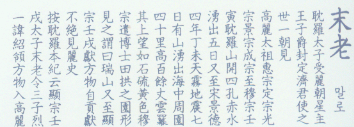 末老
말로
耽羅太子受麗朝星主
王子爵封定濟君使之
世一朝見
高麗太祖惠宗定宗光
宗景宗成宗至穆宗壬
寅耽羅山開四孔赤水
湧出五日又至宋景德
四年丁未天霧地震七
日有山湧出海中周圍
四十里高百餘丈雲
其上望如石硫黃穆
宗遣博士田拱之圖形
見之謂曰瑞山又至顯
宗壬戌獻方物自貢獻
不絶見麗史
按耽羅本紀云顯宗壬
戌太子末老令三子烈
一諱紹領方物入高麗